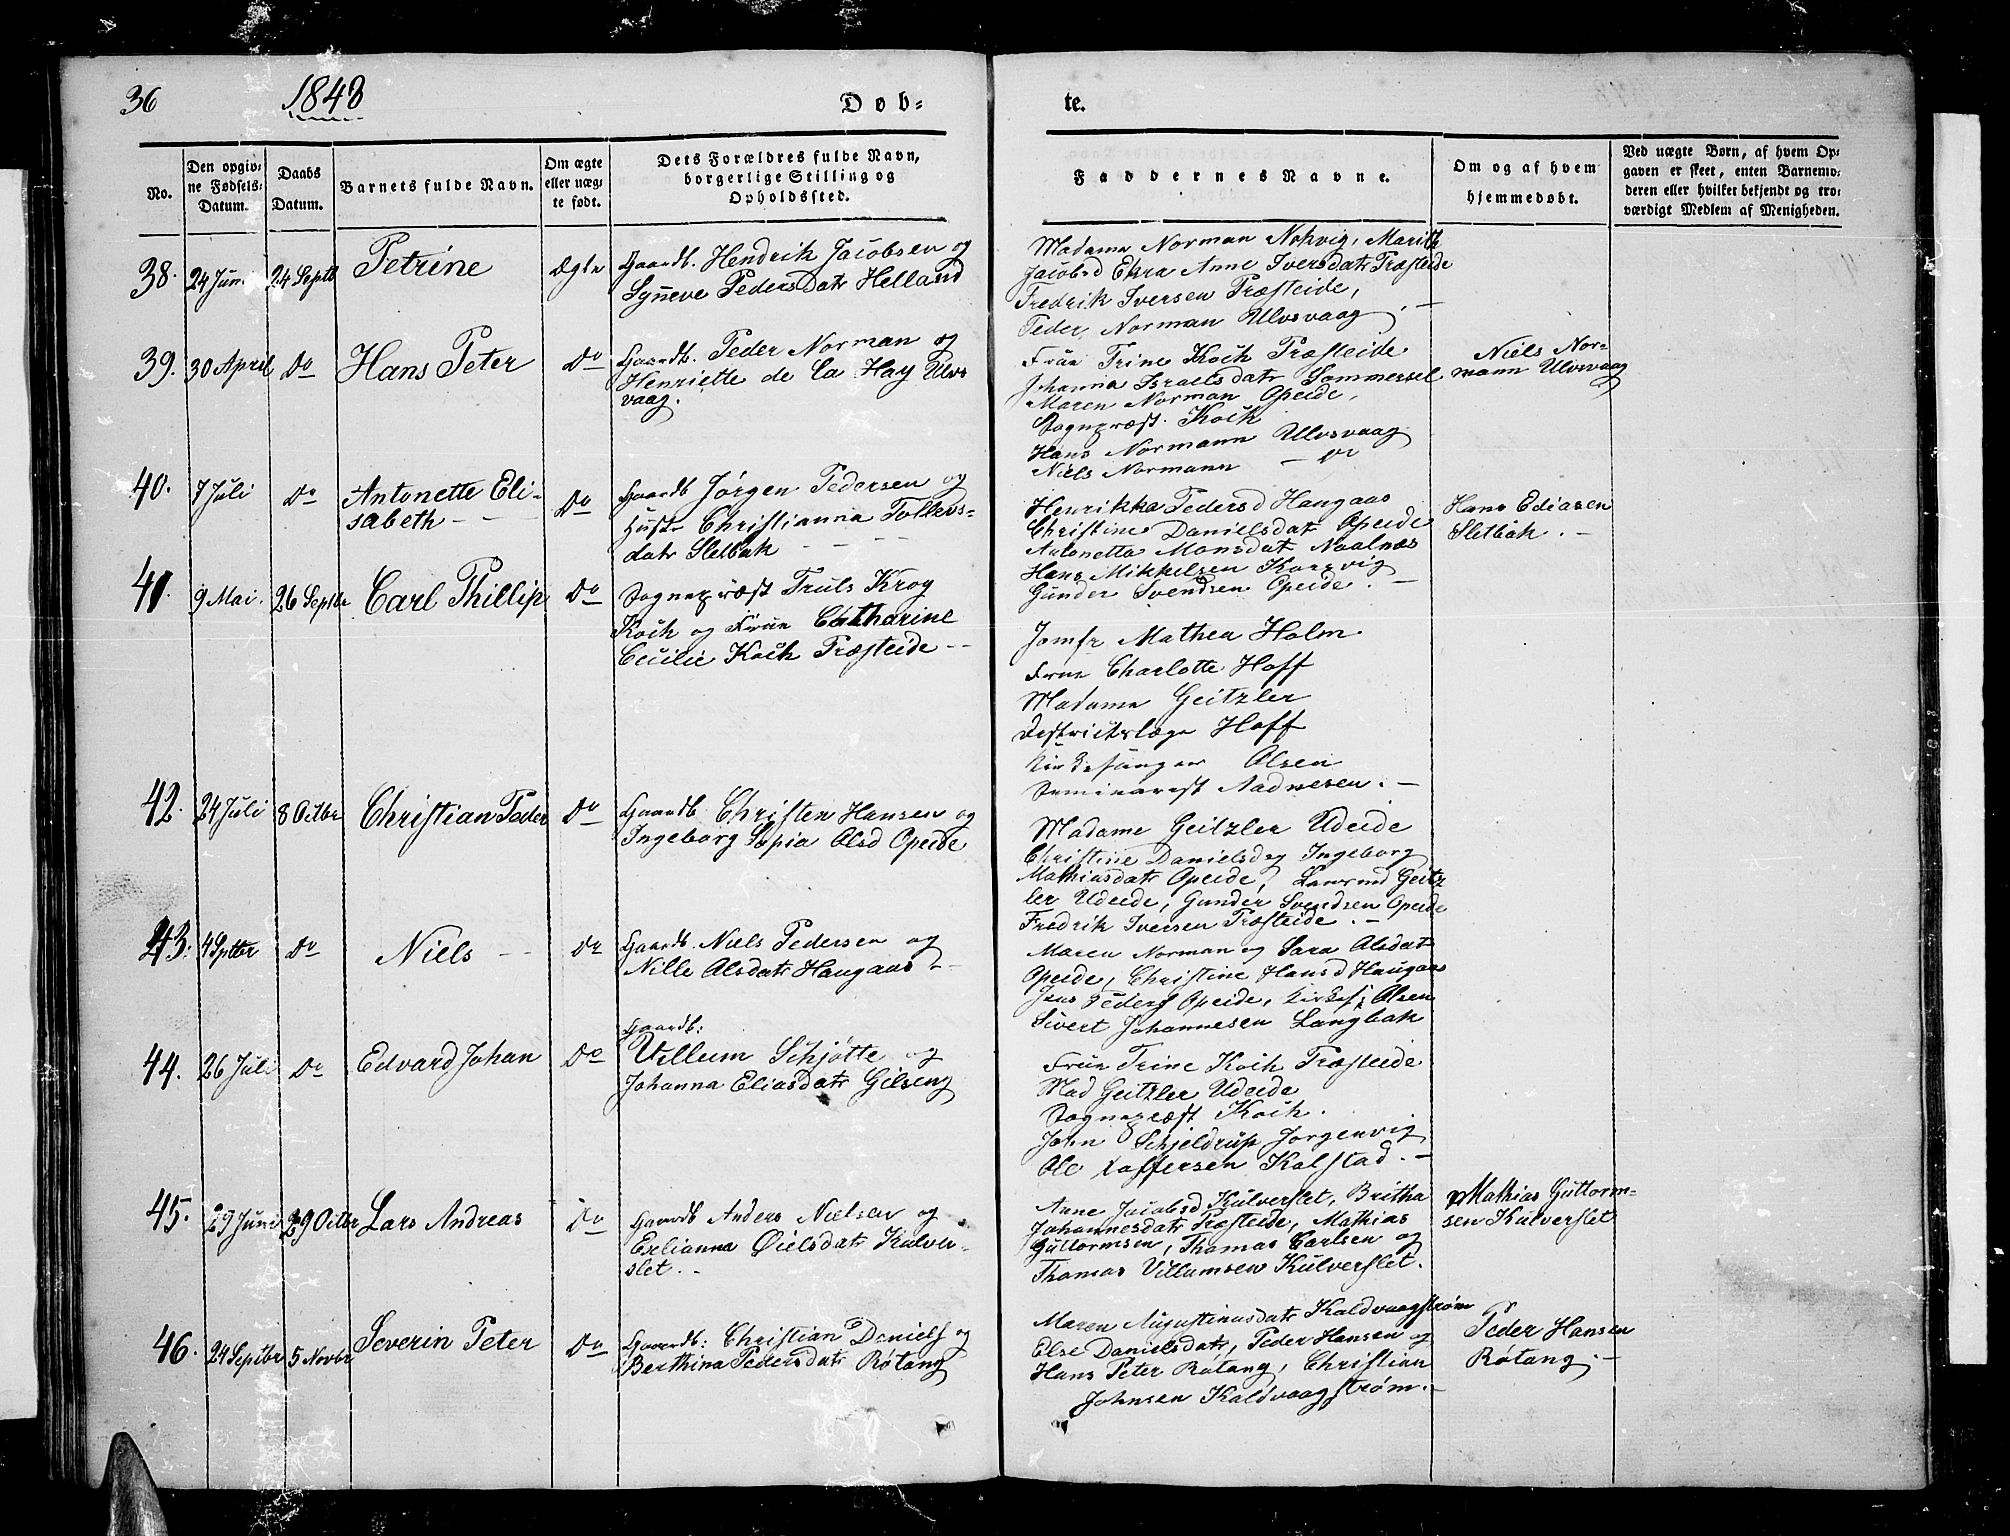 36
1848
Døb=
te.
No.
Den opgiv-
ne Fødsels-
Datum.
Daabs
Datum.
Barnets fulde Navn.
Om ægte
eller uæg-
te født.
Dets Forældres fulde Navn,
borgerlige Stilling og
Opholdssted.
Faddernes Navne.
Om og af hvem
hjemmedøbt.
Ved uægte Børn, af hvem Op-
gaven er skeet, enten Barnemo-
deren eller hvilket bekjendt og tro-
værdigt Medlem af Menigheden.
38. 24 Juni 24 Septb Petrine Ægte
Gaardb. Hendrik Jacobsen og
Syneve Pedersdatr Helland
Madame Norman Nohvig, Marith
Jacobsd Anne Iversdatr Præsteide
Fredrik Iversen Præsteide,
Peder Norman Ulvsvaag. –
39. 30 April Do Hans Peter Do
Gaardb. Peder Norman og
Henriette de la Hay Ulvs
vaag.
Frue Trine Koch Præsteide
Johanna Israelsdatr Sommersel
Maren Norman Opeide,
Sognepræst Koch
Hans Normann Ulvsvaag
Niels Normann – Do
Niels Nor-
mann Ulvsvaag
40. 7 Juli Do Antonette Eli-
sabeth – – Do
Gaardb Jørgen Pedersen og
Hustr Christianna Tollevs-
datr Sletbak – – –
Henrikka Pedersd Haugaas
Christine Danielsdatr Opeide
Antonetta Monsdat Naalnæs
Hans Mikkelsen Korsvig
Gunder Svendsen Opeide. –
Hans Ediasen
Sletbak. –
41. 9 Mai. 26 Septbr Carl Phillip Do
Sognepræst Truls Krog
Koch og Frue Catharine
Cecilie Koch Præsteide –
Jomfr Mathea Holm
Frue Charlotte Hoff
Madame Geitzler
Destrictslæge Hoff
Kirkesanger Olsen
Seminarist Aadnesen. –
42. 24 Juli 8 Octbr Christian Peder Do
Gaardb Christen Hansen og
Ingeborg Sopia Olsd Opeide
Madame Geitzler Udeide
Christine Danielsd og Ingeborg
Mathiasdatr Opeide, Laurind Geitz
ler Udeide, Gunder Svendsen Opeide
Fredrik Iversen Præsteide. –
43. 4 Septbr Do Niels – Do
Gaardb. Niels Pedersen og
Nille Olsdatr Haugaas –
Maren Norman og Sara Olsdatr
Opeide, Christine Hansd Haugaas
Jens Peders Opeide, Kirkes: Olsen
Sivert Johannesen Langbak
44. 26 Juli Do Edvard Johan Do
Gaardb:
Villum Schjøtte og
Johanna Eliasdatr Gilseng
Frue Trine Koch Præsteide
Mad Geitzler Udeide
Sognepræst Koch.
John Schjeldrup Jørgenvig
Ole Toffersen Kalstad. –
45. 29 Juni 29 Octbr Lars Andreas Do
Gaardb Anders Nielsen og
Exlianna Øielsdatr Kulver-
slet. –
Anne Jacobsd Kulverslet, Britha
Johannesdatr Præsteide, Mathias
Guttormsen, Thomas Carlsen og
Thomas Villumsen Kulverslet.
Mathias Guttorm-
sen Kulverslet
46. 24 Septbr 5 Novbr Severin Peter Do
Gaardb: Christian Daniels og
Berthina Pedersdatr Røtang
Maren Augustinusdatr Kaldvaagstrøm
Else Danielsdatr, Peder Hansen og
Hans Peter Røtang, Christian
Johnsen Kaldvaagstrøm. –
Peder Hansen
Røtang. –